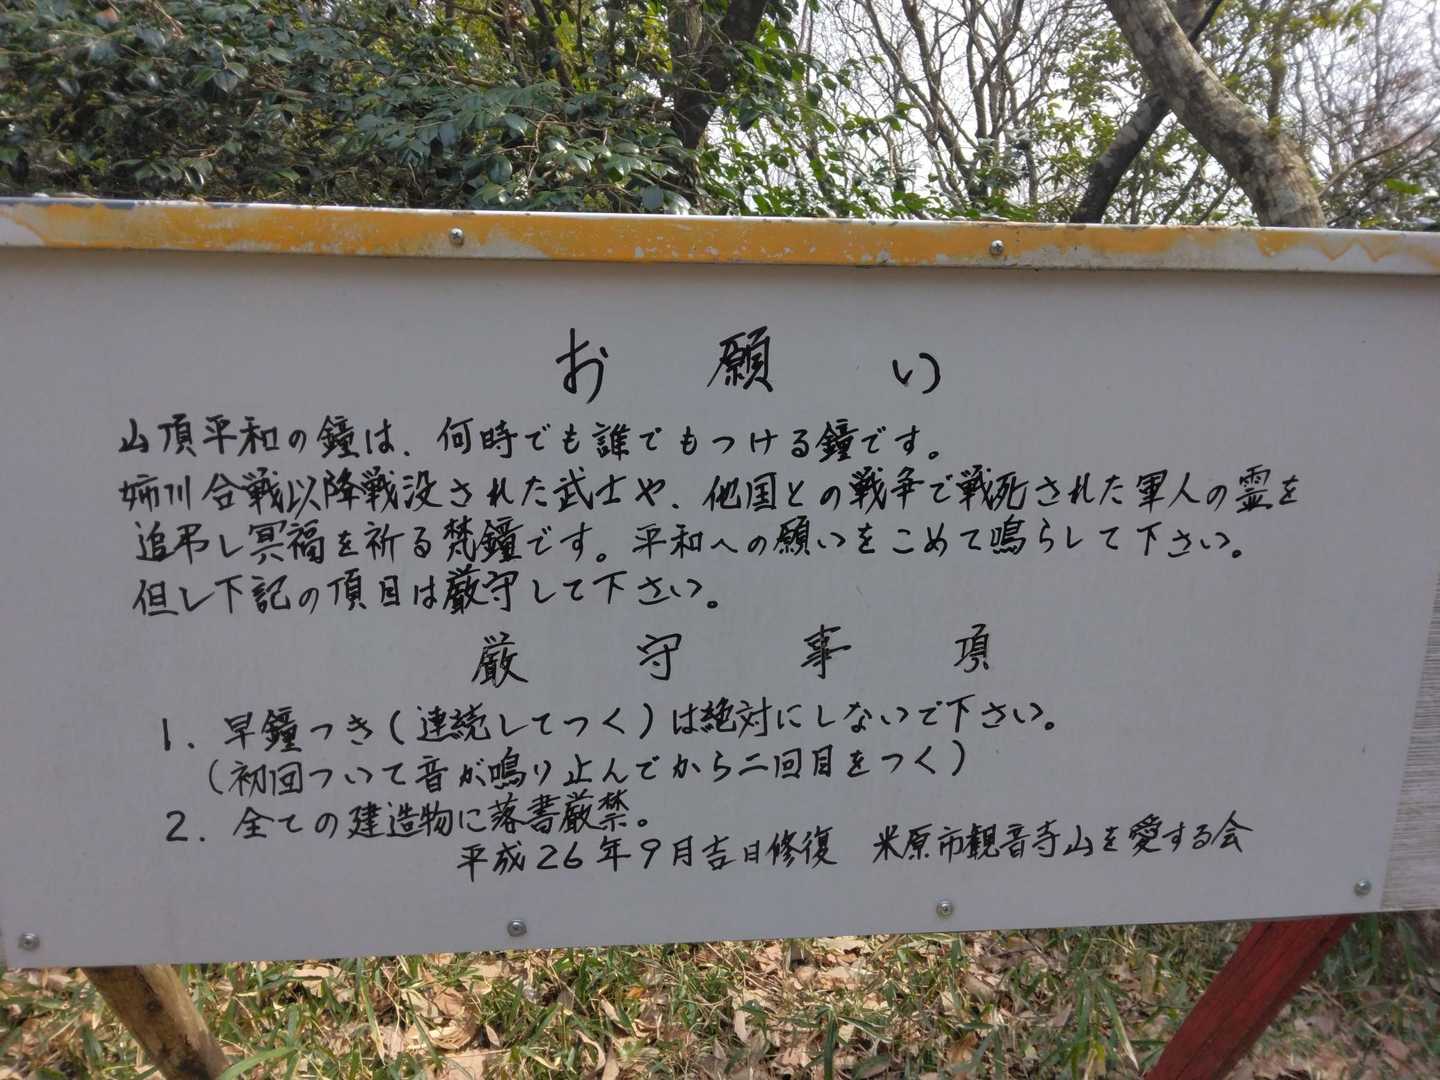 お願い
山頂平和の鐘は、何時でも誰でもつける鐘です。
姉川合戦以降戦没された武士や、他国との戦争で戦死された軍人の霊を
追弔し冥福を祈る梵鐘です。平和への願いをこめて鳴らして下さい。
但し下記の項目は厳守して下さい。
厳守事項
1. 早鐘つき(連続してつく)は絶対にしないで下さい。
(初回ついて音が鳴り止んでから二回目をつく)
2. 全ての建造物に落書厳禁。
平成26年9月吉日修復 米原市観音寺山を愛する会